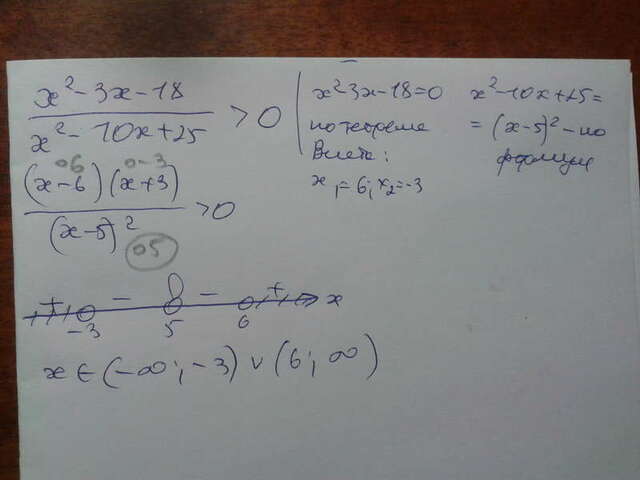 x² - 3x - 18
x² - 10x + 25
> 0
x² - 3x - 18 = 0
по теореме
Виета:
x₁ = 6; x₂ = -3
x² - 10x + 25 =
= (x - 5)² - по
формуле
06 0-3
(x - 6)(x + 3)
(x - 5)²
> 0
05
+ - - + x
-3 5 6
x ∈ (-∞; -3) ∨ (6; ∞)